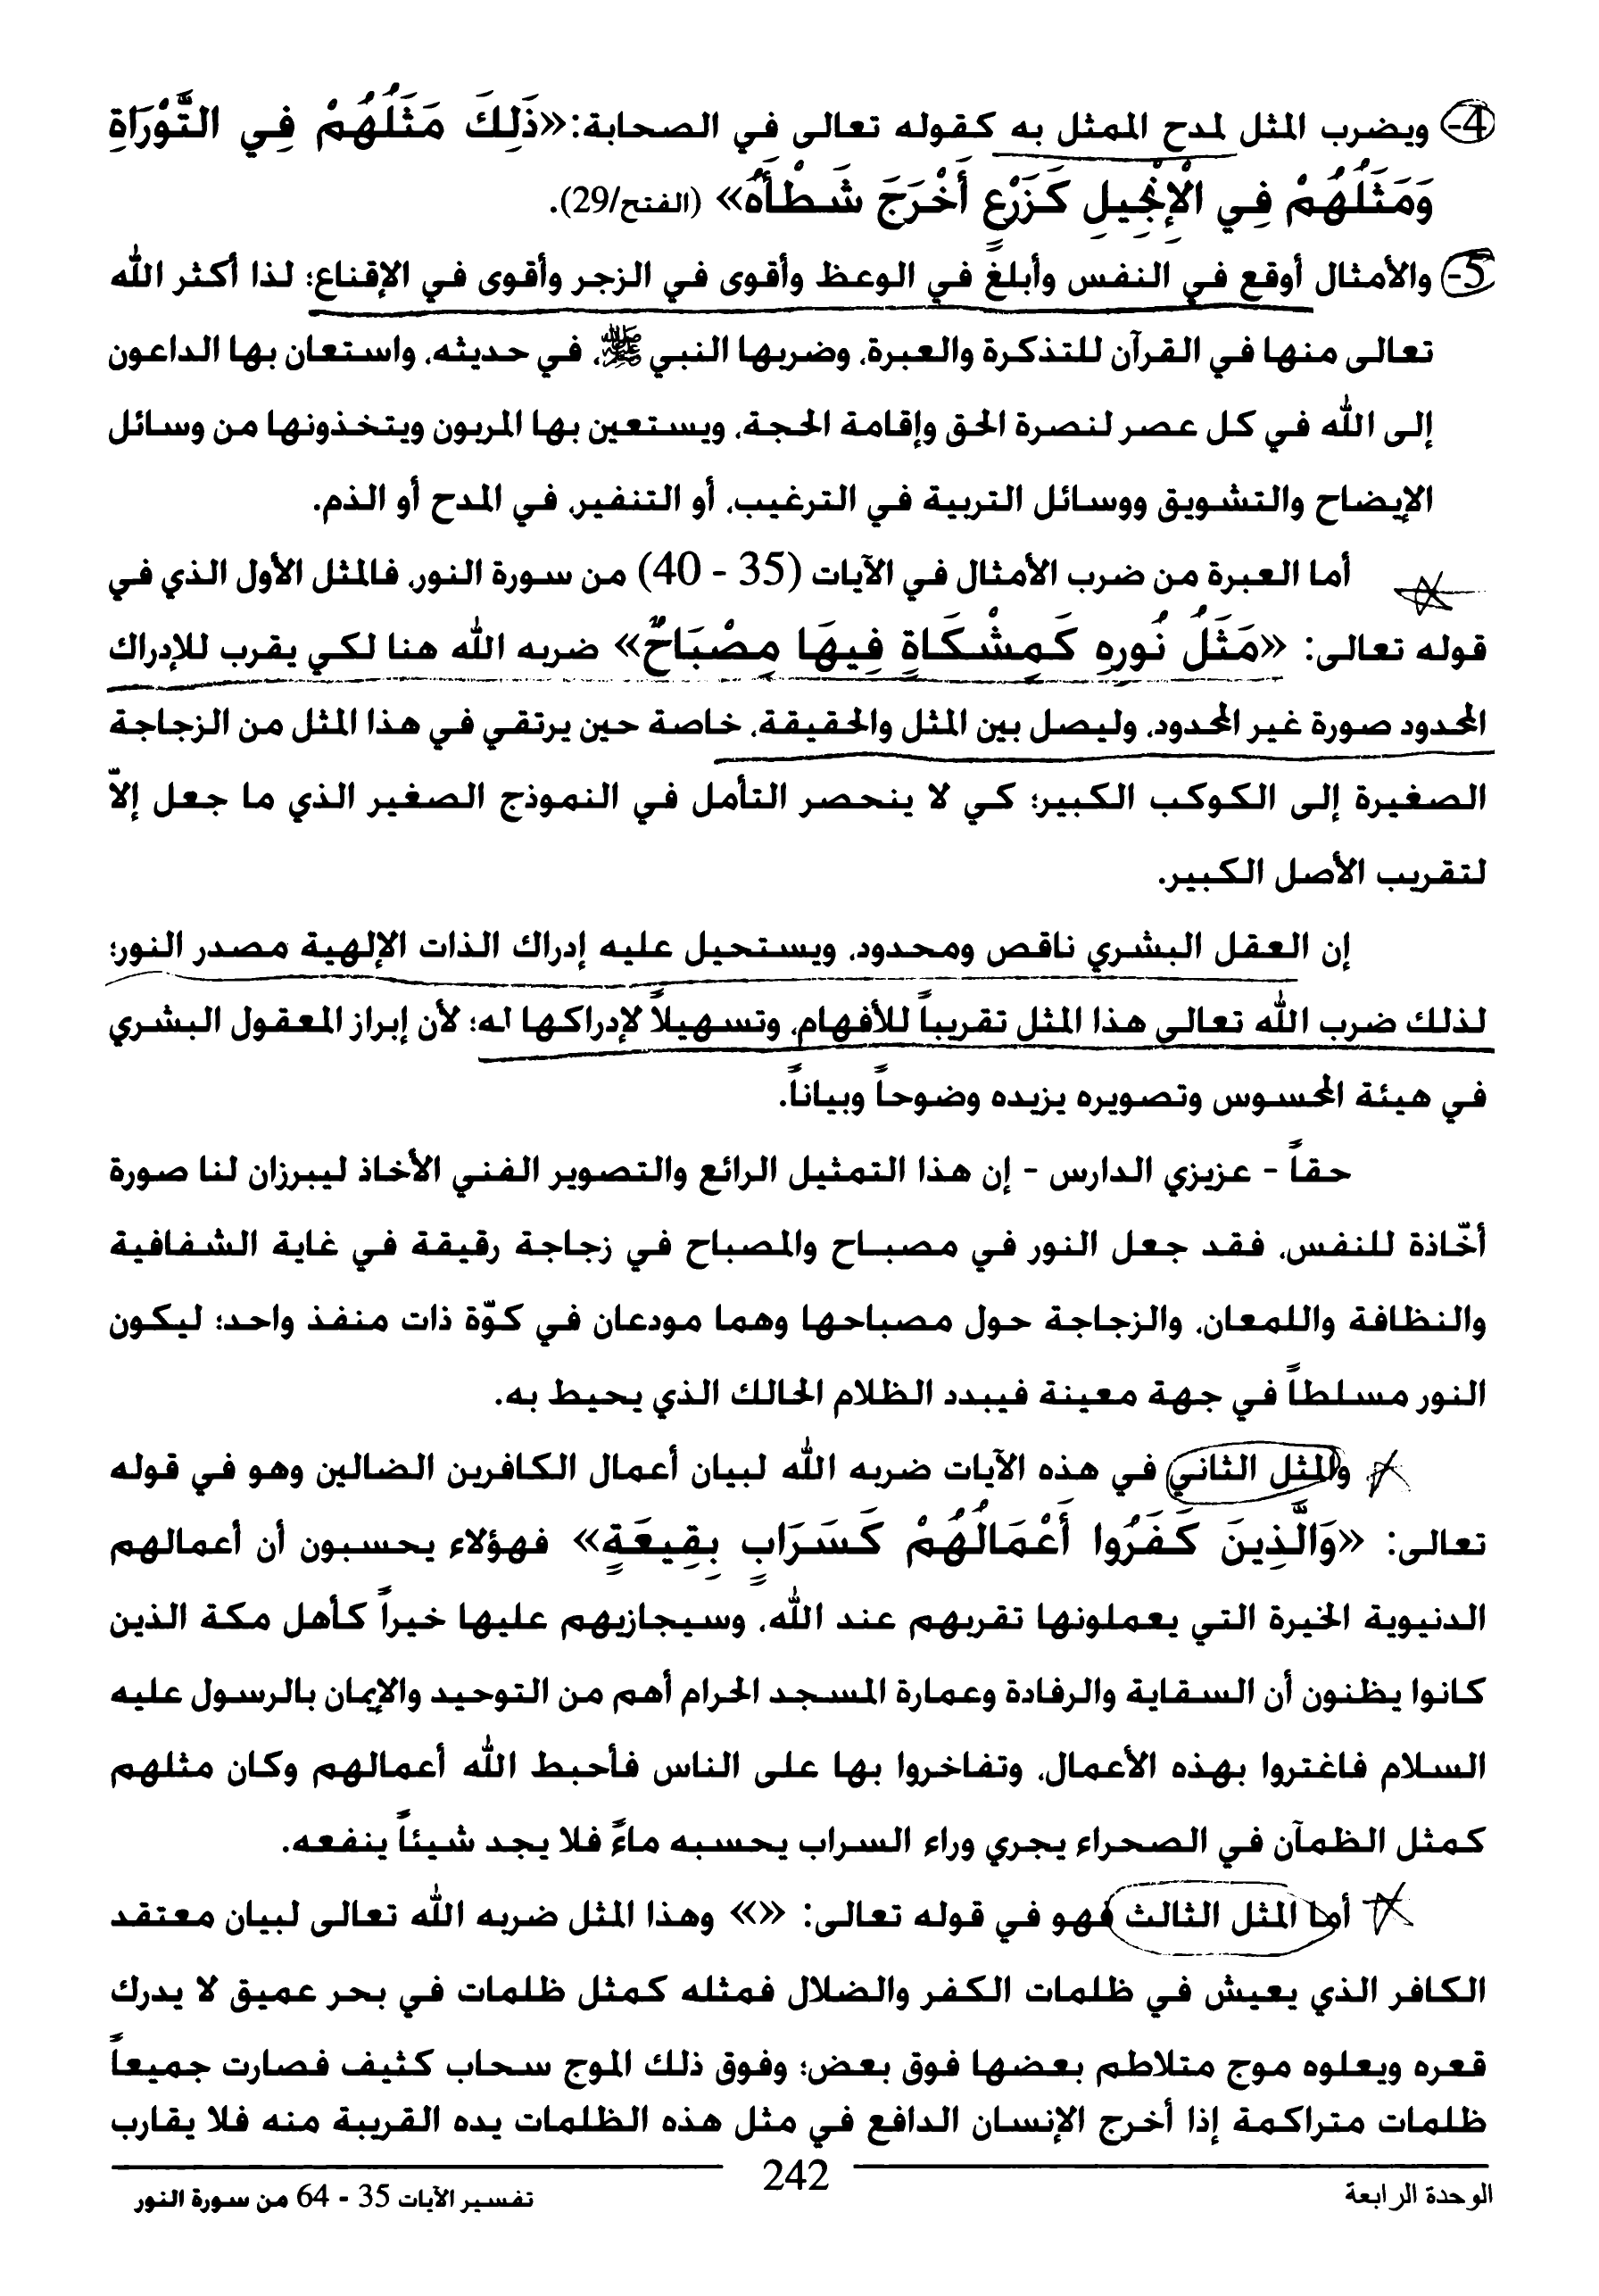 4- ويضرب المثل لمدح الممثل به كقوله تعالى في الصحابة:«ذَلِكَ مَثَلُهُمْ فِي التَّوْرَاةِ
وَمَثَلُهُمْ فِي الْإِنْجِيلِ كَزَرْعٍ أَخْرَجَ شَطْأَهُ» (الفتح/29).
5- والأمثال أوقع في النفس وأبلغ في الوعظ وأقوى في الزجر وأقوى في الإقناع؛ لذا أكثر الله
تعالى منها في القرآن للتذكرة والعبرة، وضربها النبي ﷺ، في حديثه، واستعان بها الداعون
إلى الله في كل عصر لنصرة الحق وإقامة الحجة، ويستعين بها المربون ويتخذونها من وسائل
الإيضاح والتشويق ووسائل التربية في الترغيب، أو التنفير، في المدح أو الذم.
أما العبرة من ضرب الأمثال في الآيات (35 - 40) من سورة النور، فالمثل الأول الذي في
قوله تعالى: «مَثَلُ نُورِهِ كَمِشْكَاةٍ فِيهَا مِصْبَاحٌ» ضربه الله هنا لكي يقرب للإدراك
المحدود صورة غير المحدود، وليصل بين المثل والحقيقة، خاصة حين يرتقي في هذا المثل من الزجاجة
الصغيرة إلى الكوكب الكبير؛ كي لا ينحصر التأمل في النموذج الصغير الذي ما جعل إلاّ
لتقريب الأصل الكبير.
إن العقل البشري ناقص ومحدود، ويستحيل عليه إدراك الذات الإلهية مصدر النور؛
لذلك ضرب الله تعالى هذا المثل تقريباً للأفهام، وتسهيلاً لإدراكها له؛ لأن إبراز المعقول البشري
في هيئة المحسوس وتصويره يزيده وضوحاً وبياناً.
حقاً - عزيزي الدارس - إن هذا التمثيل الرائع والتصوير الفني الأخاذ ليبرزان لنا صورة
أخّاذة للنفس، فقد جعل النور في مصباح والمصباح في زجاجة رقيقة في غاية الشفافية
والنظافة واللمعان، والزجاجة حول مصباحها وهما مودعان في كوّة ذات منفذ واحد؛ ليكون
النور مسلطاً في جهة معينة فيبدد الظلام الحالك الذي يحيط به.
والمثل الثاني في هذه الآيات ضربه الله لبيان أعمال الكافرين الضالين وهو في قوله
تعالى: «وَالَّذِينَ كَفَرُوا أَعْمَالُهُمْ كَسَرَابٍ بِقِيعَةٍ» فهؤلاء يحسبون أن أعمالهم
الدنيوية الخيرة التي يعملونها تقربهم عند الله، وسيجازيهم عليها خيراً كأهل مكة الذين
كانوا يظنون أن السقاية والرفادة وعمارة المسجد الحرام أهم من التوحيد والإيمان بالرسول عليه
السلام فاغتروا بهذه الأعمال، وتفاخروا بها على الناس فأحبط الله أعمالهم وكان مثلهم
كمثل الظمآن في الصحراء يجري وراء السراب يحسبه ماءً فلا يجد شيئاً ينفعه.
أما المثل الثالث فهو في قوله تعالى: «» وهذا المثل ضربه الله تعالى لبيان معتقد
الكافر الذي يعيش في ظلمات الكفر والضلال فمثله كمثل ظلمات في بحر عميق لا يدرك
قعره ويعلوه موج متلاطم بعضها فوق بعض؛ وفوق ذلك الموج سحاب كثيف فصارت جميعاً
ظلمات متراكمة إذا أخرج الإنسان الدافع في مثل هذه الظلمات يده القريبة منه فلا يقارب
الوحدة الرابعة
242
تفسير الآيات 35 - 64 من سورة النور